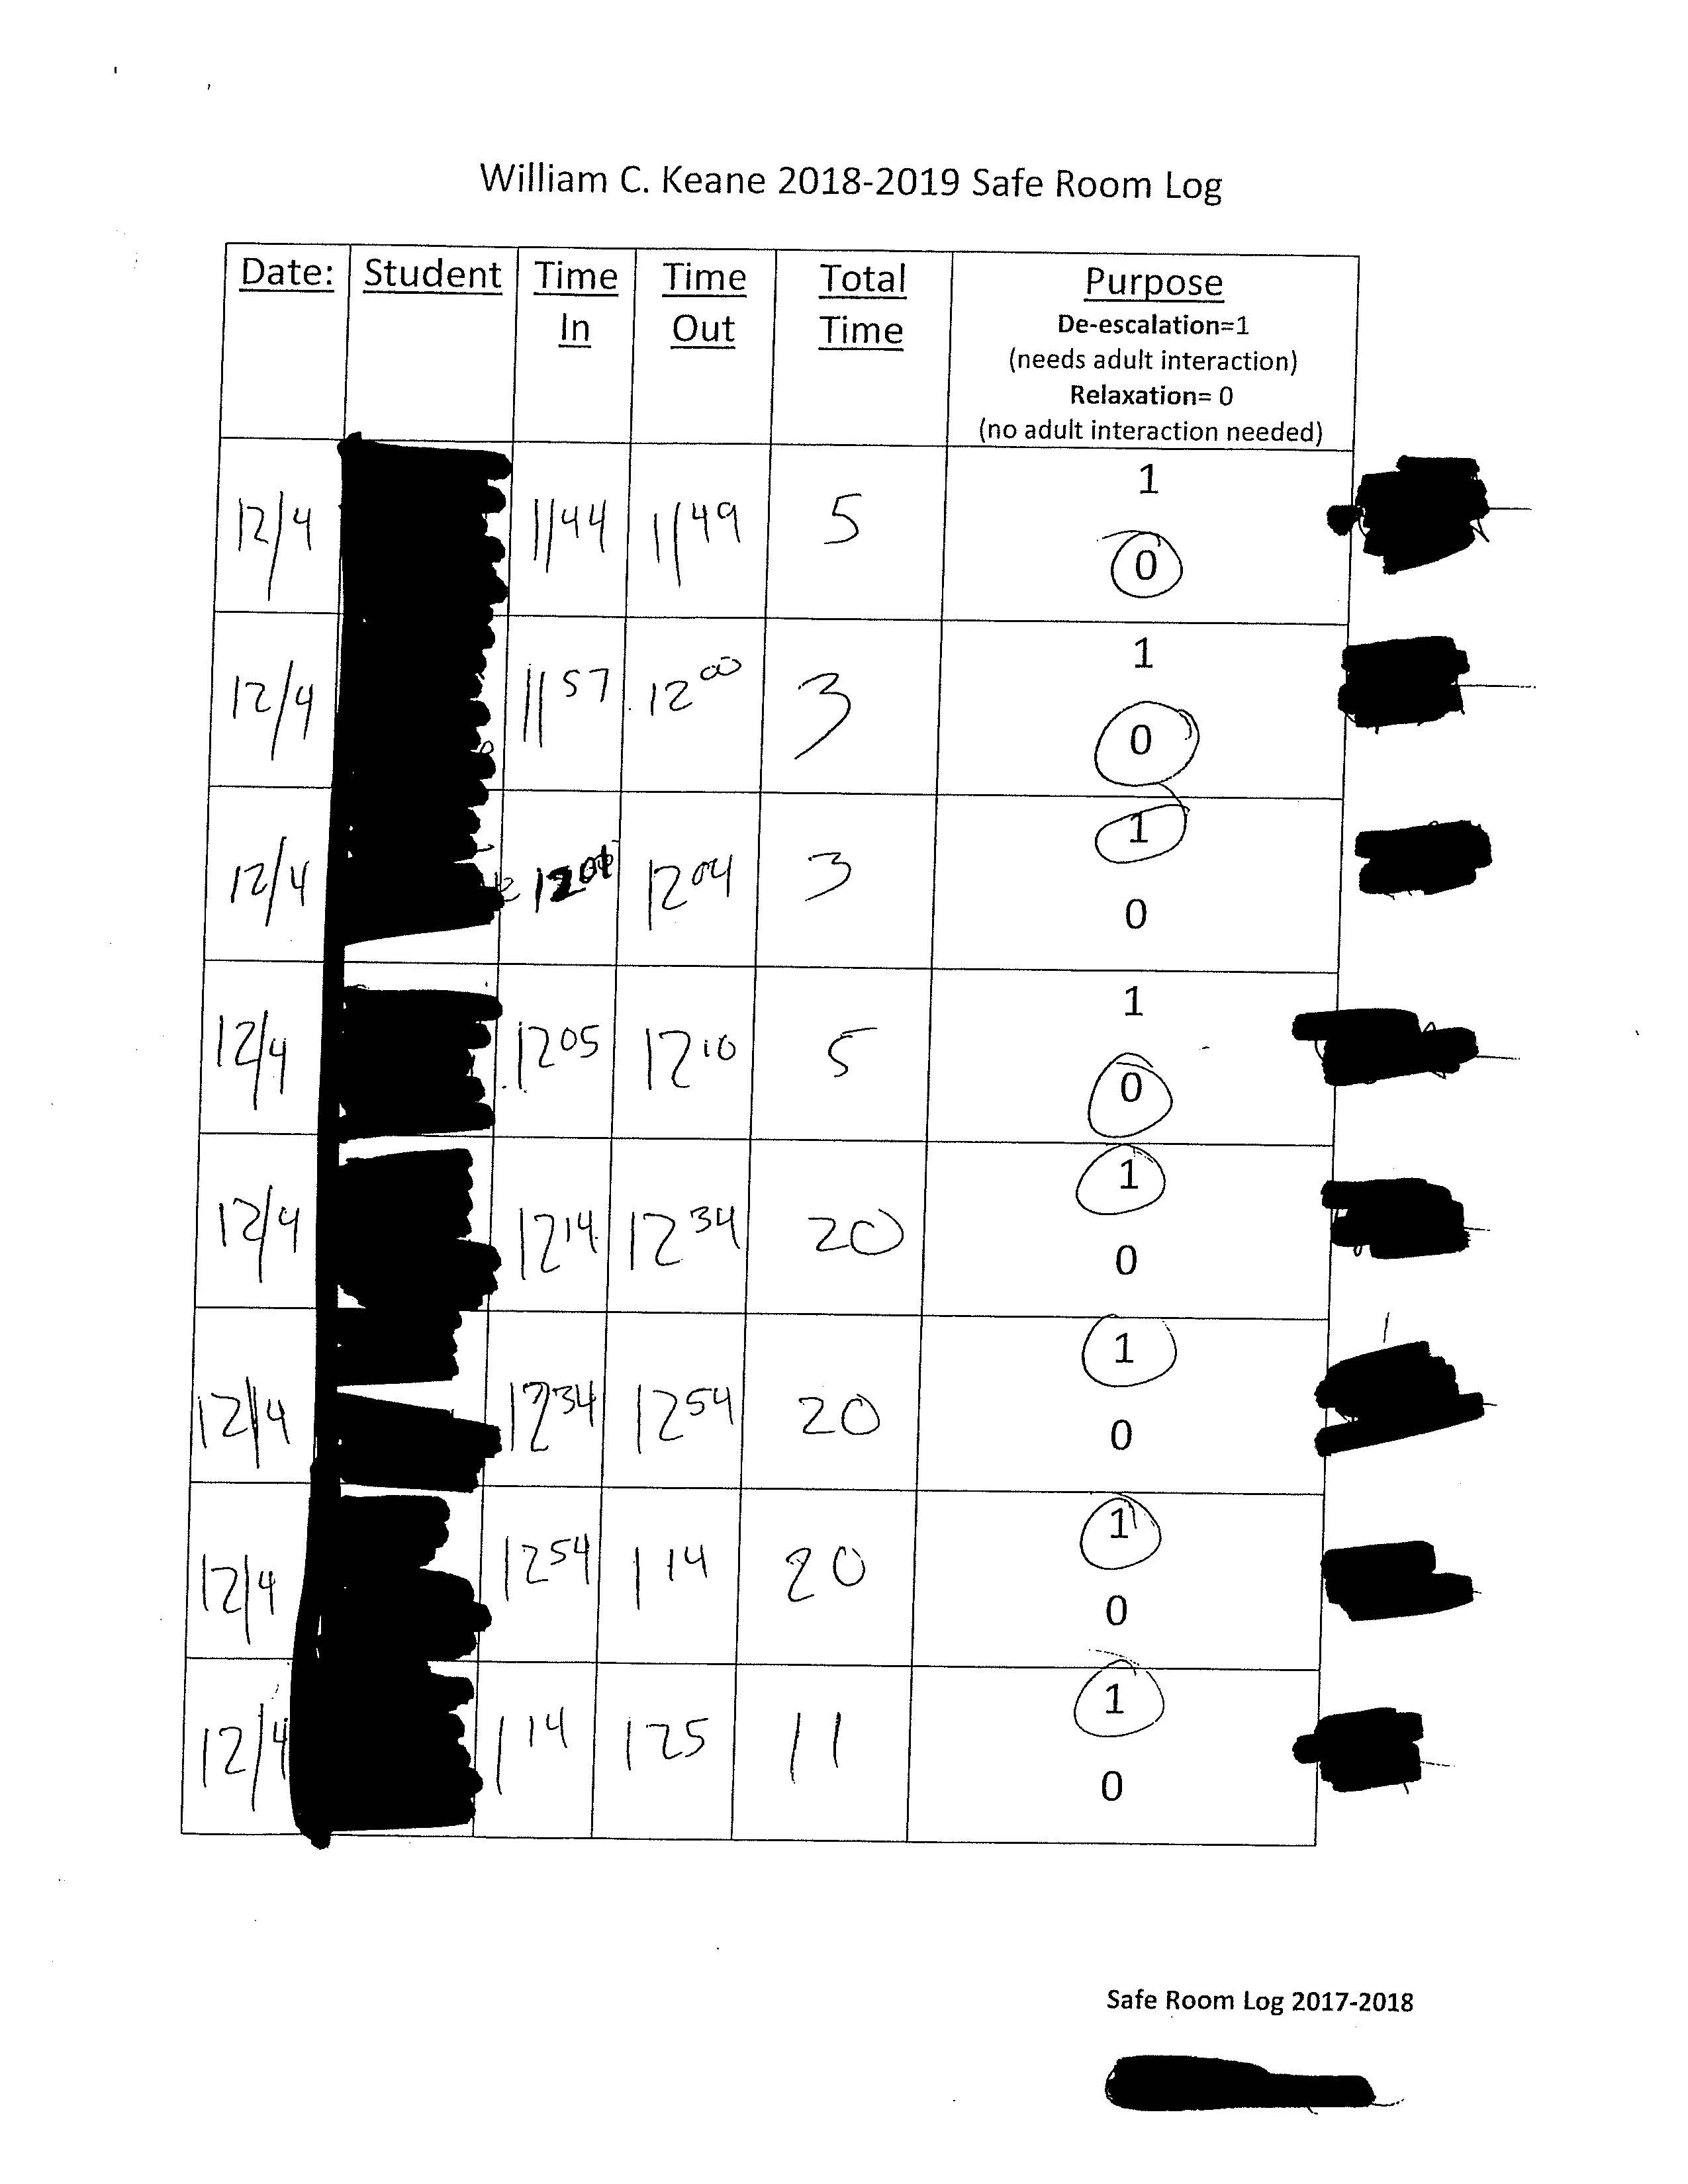 William C. Keane 2018-2019 Safe Room Log
Date: Student Time In Time Out Total Time Purpose
De-escalation=1
(needs adult interaction)
Relaxation= 0
(no adult interaction needed)
12/4 1144 1149 5 1 0
12/4 1157 1200 3 1 0
12/4 1201 1204 3 1 0
12/4 1205 1210 5 1 0
12/4 1214 1234 20 1 0
12/4 1234 1254 20 1 0
12/4 1254 114 20 1 0
12/4 114 125 11 1 0
Safe Room Log 2017-2018